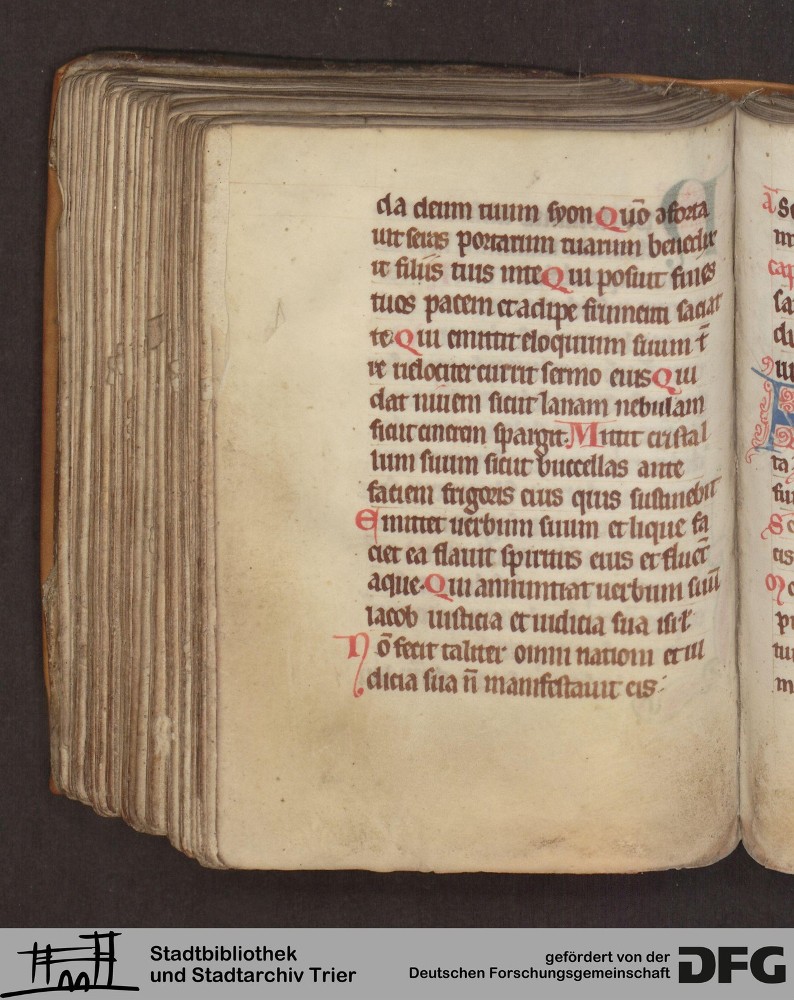 da deum tuum syon Quō ↄforta
uit seras portarum tuarum benedix
it filiis tuis in te Qui posuit fines
tuos pacem et adipe frumenti saciat
te Qui emittit eloquium suum t̄
re uelociter currit sermo eius Qui
dat niuem sicut lanam nebulam
sicut cinerem spargit. Mittit cristal
lum suum sicut buccellas ante
faciem frigoris eius quis sustinebit
Emittet uerbum suum et lique fa
ciet ea flauit spiritus eius et fluēt
aque. Qui annuntiat uerbum suū
iacob iusticia et iudicia sua isrl'
Nō fecit taliter omni nationi et iu
dicia sua n̄ manifestauit eis
Stadtbibliothek
und Stadtarchiv Trier
gefördert von der
Deutschen Forschungsgemeinschaft
DFG